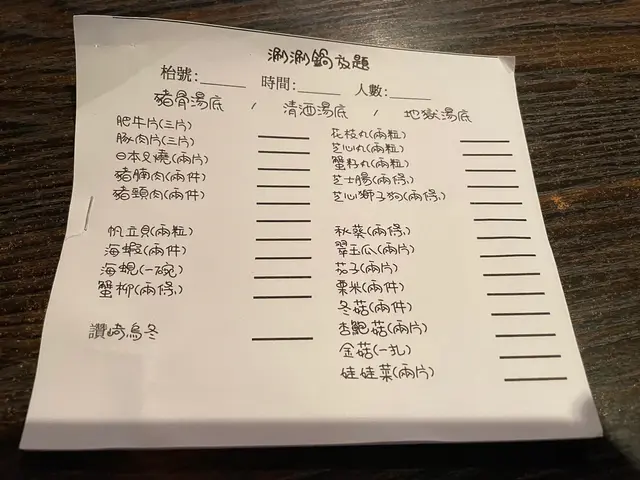 涮涮鍋放題
枱號:______ 時間:______ 人數:______
豬骨湯底 / 清酒湯底 / 地獄湯底
肥牛片(三片)
豚肉片(三片)
日本叉燒(兩片)
豬腩肉(兩件)
豬頸肉(兩件)
帆立貝(兩粒)
海蝦(兩件)
海蜆(一碗)
蟹柳(兩條)
讚岐烏冬
花枝丸(兩粒)
芝心丸(兩粒)
蟹籽丸(兩粒)
芝士腸(兩條)
芝心獅子狗(兩條)
秋葵(兩條)
翠玉瓜(兩片)
茄子(兩片)
粟米(兩件)
冬菇(兩件)
杏鮑菇(兩片)
金菇(一扎)
娃娃菜(兩片)